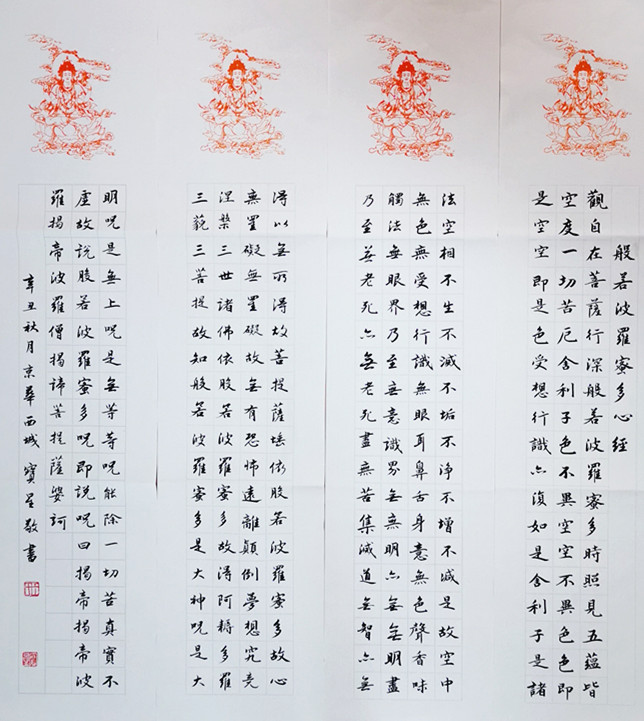 般若波羅蜜多心經
觀自在菩薩行深般若波羅蜜多時照見五蘊皆
空度一切苦厄舍利子色不異空空不異色色即
是空空即是色受想行識亦復如是舍利子是諸
法空相不生不滅不垢不淨不增不減是故空中
無色無受想行識無眼耳鼻舌身意無色聲香味
觸法無眼界乃至無意識界無無明亦無無明盡
乃至無老死亦無老死盡無苦集滅道無智亦無
得以無所得故菩提薩埵依般若波羅蜜多故心
無罣礙無罣礙故無有恐怖遠離顛倒夢想究竟
涅槃三世諸佛依般若波羅蜜多故得阿耨多羅
三藐三菩提故知般若波羅蜜多是大神呪是大
明呪是無上呪是無等等呪能除一切苦真實不
虛故說般若波羅蜜多呪即說呪曰揭帝揭帝波
羅揭帝波羅僧揭諦菩提薩婆訶
辛丑秋月京華西城寶星敬書